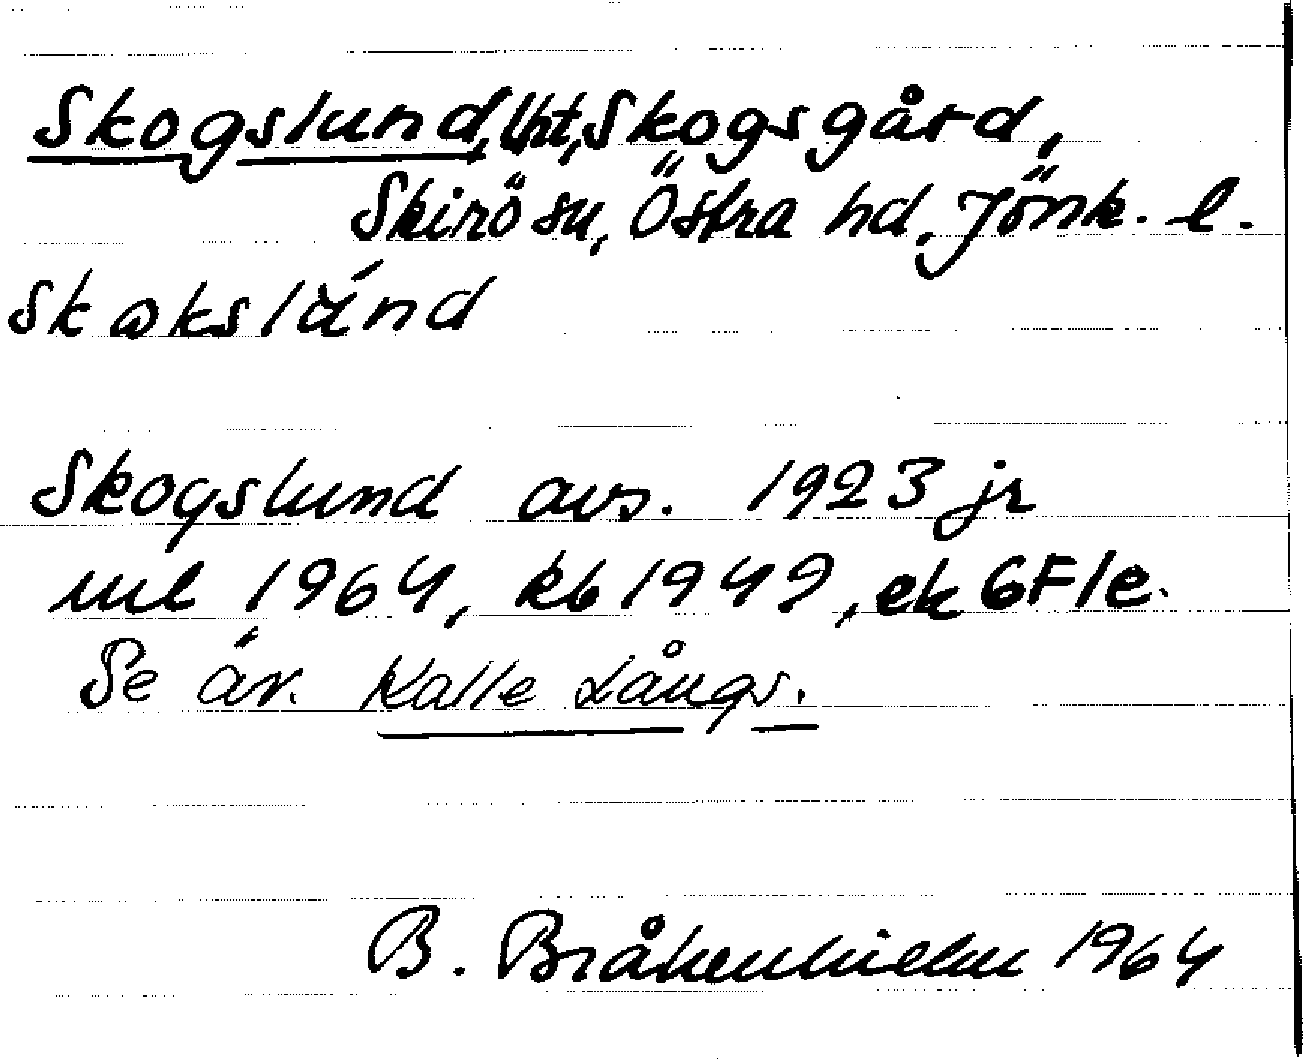 Skogslund, lht, Skogsgård,
Skirö sn, Östra hd, Jönk. l.
skɷkslánd
Skogslund avs. 1923 jr
ml 1964, kb 1949, ek 6F1e.
Se äv. Kalle Långs.
B. Bråkenhielm 1964